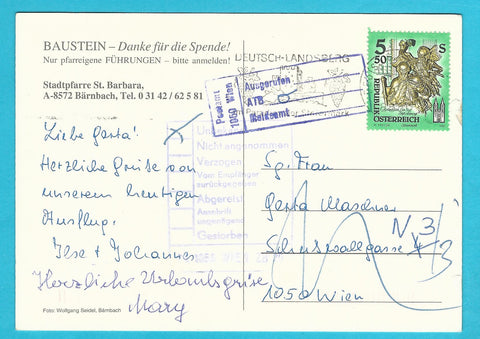 BAUSTEIN – Danke für die Spende!
Nur pfarreigene FÜHRUNGEN – bitte anmelden!
Stadtpfarre St. Barbara,
A-8572 Bärnbach, Tel. 0 31 42 / 62 5 81
Liebe Gerta!
Herzliche Grüße von
unserem heutigen
Ausflug.
Ilse + Johannes
Herzliche Urlaubsgrüße
Mary
Foto: Wolfgang Seidel, Bärnbach
DEUTSCH-LANDSBERG
Postamt
1050 Wien
Ausgerufen
ATB
Meldeamt
Nicht angenommen
Verzogen
Vom Empfänger
zurückgegeben
Abgereist
Anschrift
ungenügend
Gestorben
5 50 S
REPUBLIK
ÖSTERREICH
Sg. Frau
Gerta
N 3/3
1050 Wien